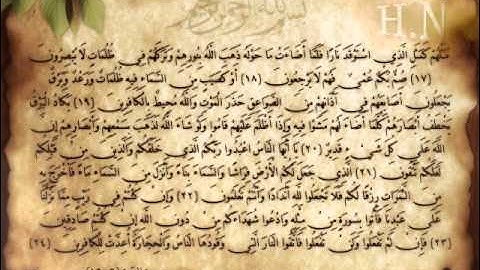 بسم الله الرحمن الرحيم
H.N
مَثَلُهُمْ كَمَثَلِ الَّذِي اسْتَوْقَدَ نَارًا فَلَمَّا أَضَاءَتْ مَا حَوْلَهُ ذَهَبَ اللَّهُ بِنُورِهِمْ وَتَرَكَهُمْ فِي ظُلُمَاتٍ لَا يُبْصِرُونَ
(١٧) صُمٌّ بُكْمٌ عُمْيٌ فَهُمْ لَا يَرْجِعُونَ (١٨) أَوْ كَصَيِّبٍ مِنَ السَّمَاءِ فِيهِ ظُلُمَاتٌ وَرَعْدٌ وَبَرْقٌ
يَجْعَلُونَ أَصَابِعَهُمْ فِي آذَانِهِمْ مِنَ الصَّوَاعِقِ حَذَرَ الْمَوْتِ وَاللَّهُ مُحِيطٌ بِالْكَافِرِينَ (١٩) يَكَادُ الْبَرْقُ
يَخْطَفُ أَبْصَارَهُمْ كُلَّمَا أَضَاءَ لَهُمْ مَشَوْا فِيهِ وَإِذَا أَظْلَمَ عَلَيْهِمْ قَامُوا وَلَوْ شَاءَ اللَّهُ لَذَهَبَ بِسَمْعِهِمْ وَأَبْصَارِهِمْ إِنَّ
اللَّهَ عَلَى كُلِّ شَيْءٍ قَدِيرٌ (٢٠) يَا أَيُّهَا النَّاسُ اعْبُدُوا رَبَّكُمُ الَّذِي خَلَقَكُمْ وَالَّذِينَ مِنْ قَبْلِكُمْ
لَعَلَّكُمْ تَتَّقُونَ (٢١) الَّذِي جَعَلَ لَكُمُ الْأَرْضَ فِرَاشًا وَالسَّمَاءَ بِنَاءً وَأَنْزَلَ مِنَ السَّمَاءِ مَاءً فَأَخْرَجَ بِهِ
مِنَ الثَّمَرَاتِ رِزْقًا لَكُمْ فَلَا تَجْعَلُوا لِلَّهِ أَنْدَادًا وَأَنْتُمْ تَعْلَمُونَ (٢٢) وَإِنْ كُنْتُمْ فِي رَيْبٍ مِمَّا نَزَّلْنَا
عَلَى عَبْدِنَا فَأْتُوا بِسُورَةٍ مِنْ مِثْلِهِ وَادْعُوا شُهَدَاءَكُمْ مِنْ دُونِ اللَّهِ إِنْ كُنْتُمْ صَادِقِينَ
(٢٣) فَإِنْ لَمْ تَفْعَلُوا وَلَنْ تَفْعَلُوا فَاتَّقُوا النَّارَ الَّتِي وَقُودُهَا النَّاسُ وَالْحِجَارَةُ أُعِدَّتْ لِلْكَافِرِينَ (٢٤)